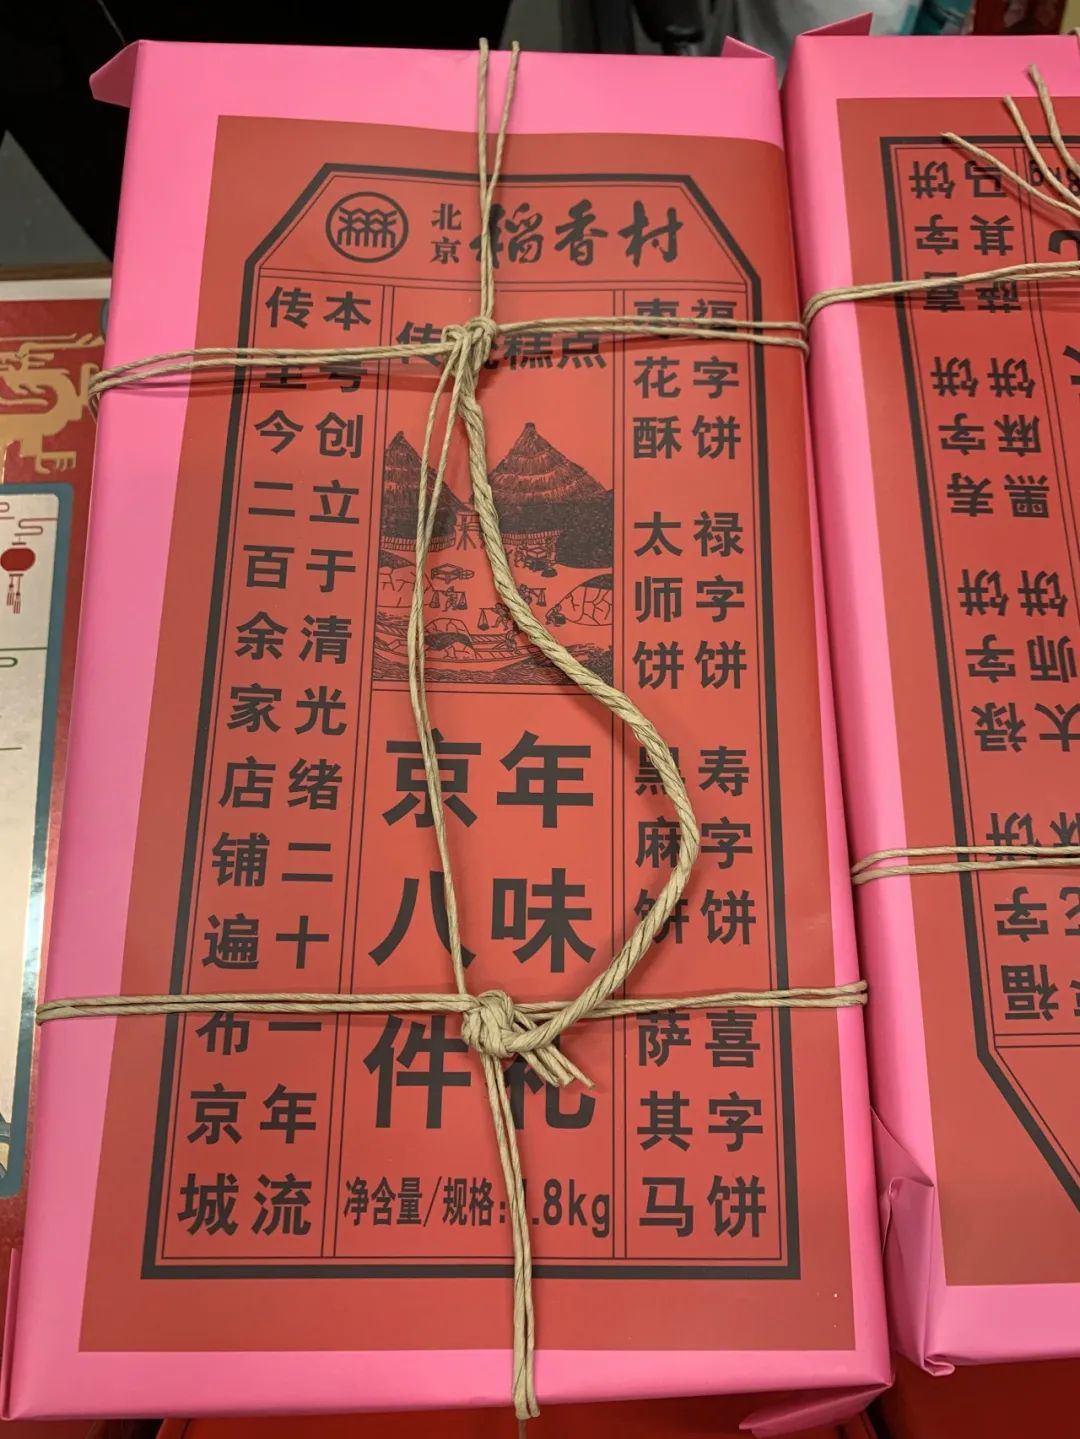 北京稻香村
福字饼 禄字饼 寿字饼 喜字饼
枣花酥 太师饼 黑麻饼 萨其马
传统糕点
年味礼
京八件
净含量/规格:1.8kg
本号创立于清光绪二十一年流
传至今二百余家店铺遍布京城
福字饼 禄字饼 寿字饼 喜字饼
太师饼 黑麻饼 萨其马